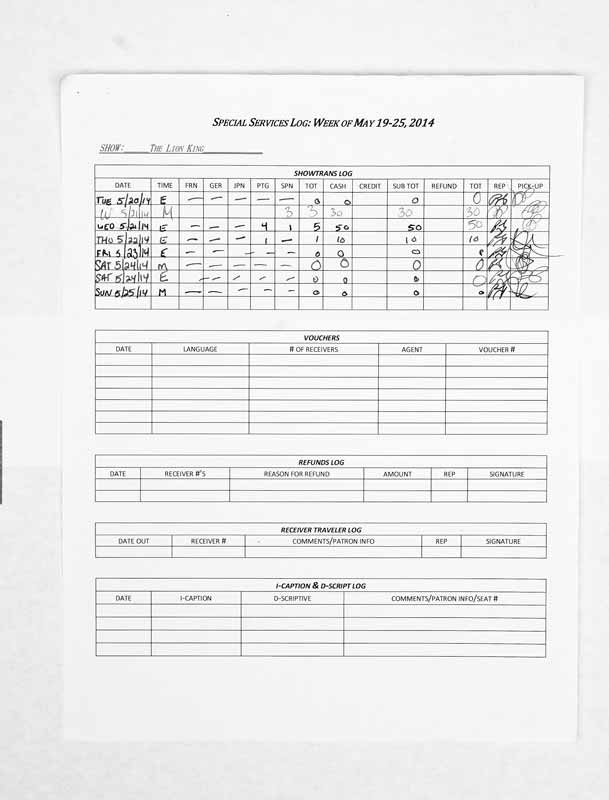 SPECIAL SERVICES LOG: WEEK OF MAY 19-25, 2014
SHOW: THE LION KING
SHOWTRANS LOG
DATE TIME FRN GER JPN PTG SPN TOT CASH CREDIT SUB TOT REFUND TOT REP PICK-UP
TUE 5/20/14 E — — — — — 0 0 0 0
W 5/21/14 M 3 3 30 30 30
WED 5/21/14 E — — — 4 1 5 50 50 50
THU 5/22/14 E — — — 1 — 1 10 10 10
FRI 5/23/14 E — — — — — 0 0 0 0
SAT 5/24/14 M — — — — — 0 0 0 0
SAT 5/24/14 E — — — — — 0 0 0 0
SUN 5/25/14 M — — — — — 0 0 0 0
VOUCHERS
DATE LANGUAGE # OF RECEIVERS AGENT VOUCHER #
REFUNDS LOG
DATE RECEIVER #'S REASON FOR REFUND AMOUNT REP SIGNATURE
RECEIVER TRAVELER LOG
DATE OUT RECEIVER # COMMENTS/PATRON INFO REP SIGNATURE
I-CAPTION & D-SCRIPT LOG
DATE I-CAPTION D-SCRIPTIVE COMMENTS/PATRON INFO/SEAT #